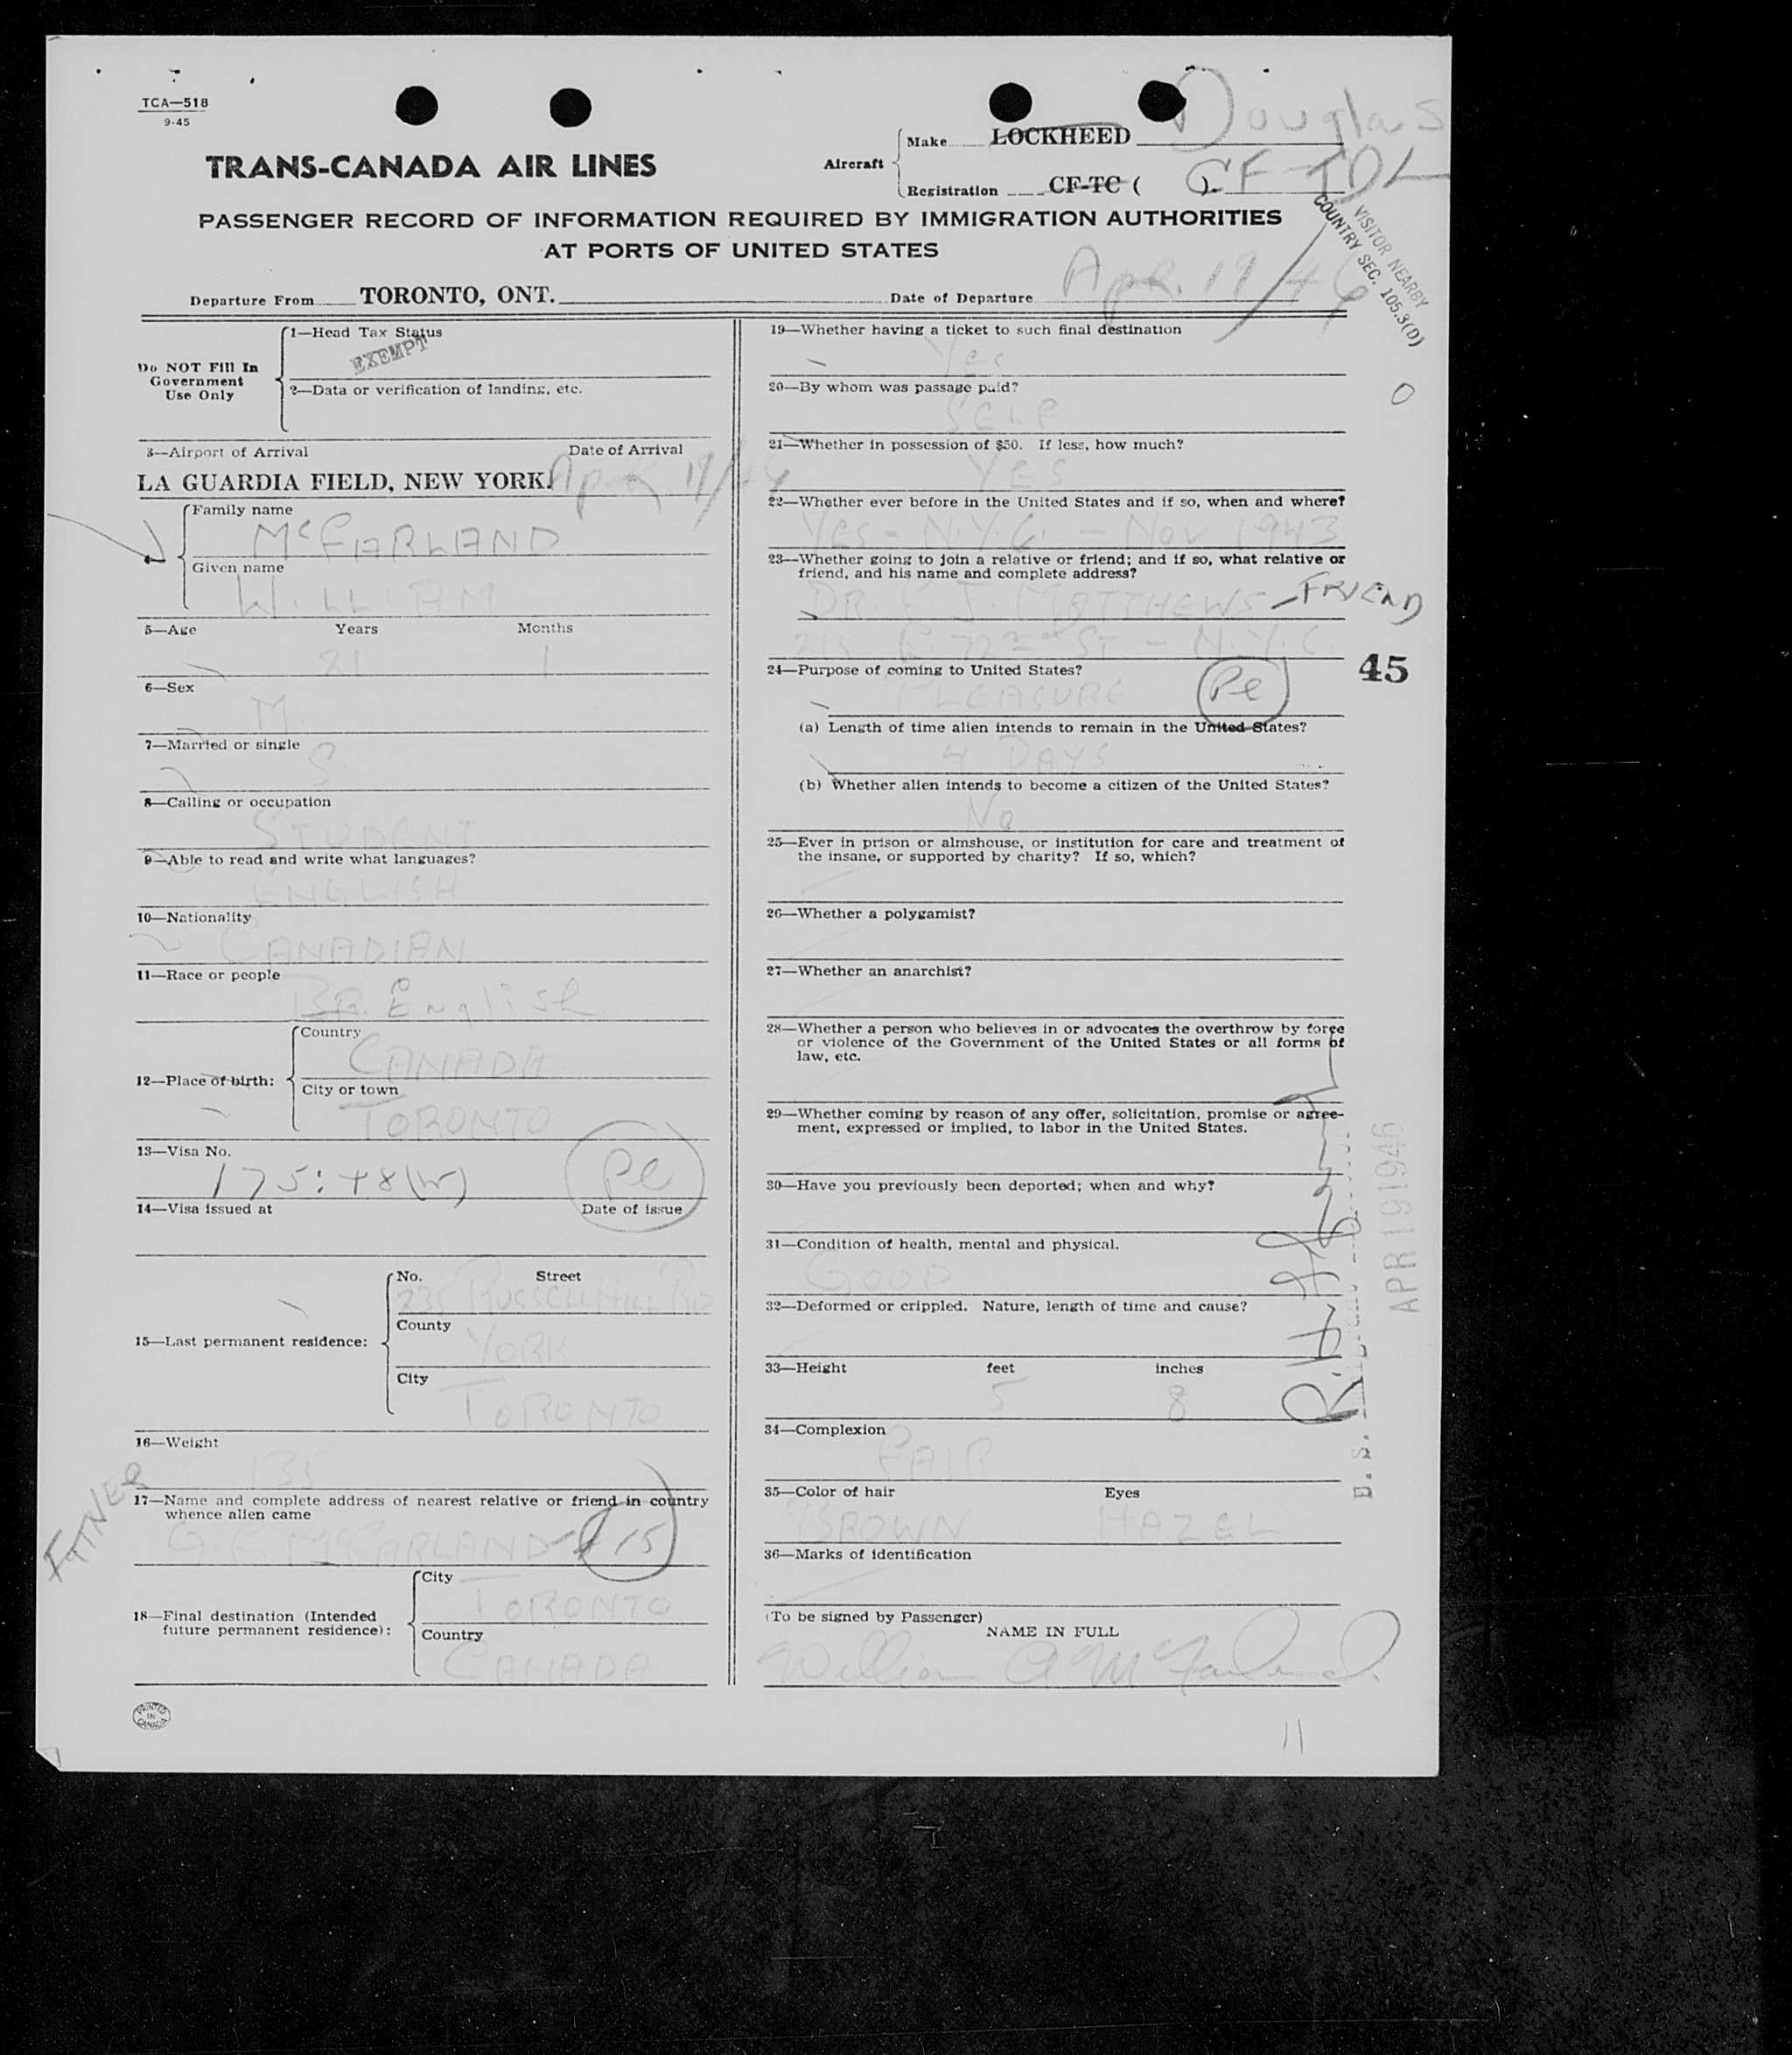 TCA—518
9-45
TRANS-CANADA AIR LINES
Aircraft
Make LOCKHEED Douglas
Registration CF-TC ( ). CF-TDL
PASSENGER RECORD OF INFORMATION REQUIRED BY IMMIGRATION AUTHORITIES
AT PORTS OF UNITED STATES
VISITOR NEARBY
COUNTRY SEC. 105.3(D)
Departure From TORONTO, ONT. Date of Departure Apr. 19/46
Do NOT Fill In
Government
Use Only
1—Head Tax Status
EXEMPT
2—Data or verification of landing, etc.
3—Airport of Arrival Date of Arrival
LA GUARDIA FIELD, NEW YORK. Apr 19/46
4—
Family name
McFARLAND
Given name
WILLIAM
5—Age Years Months
21 1
6—Sex
M
7—Married or single
S
8—Calling or occupation
STUDENT
9—Able to read and write what languages?
ENGLISH
10—Nationality
CANADIAN
11—Race or people
BR. English
12—Place of birth:
Country
CANADA
City or town
TORONTO
13—Visa No.
175:48(W) Pl
14—Visa issued at Date of issue
15—Last permanent residence:
No. Street
235 RUSSELL HILL RD
County
YORK
City
TORONTO
16—Weight
135
17—Name and complete address of nearest relative or friend in country
whence alien came
FATHER
McFARLAND #15
18—Final destination (Intended
future permanent residence):
City
TORONTO
Country
CANADA
PRINTED
IN
CANADA
19—Whether having a ticket to such final destination
Yes
20—By whom was passage paid?
SELF
21—Whether in possession of $50. If less, how much?
YES
22—Whether ever before in the United States and if so, when and where?
YES - N.Y.C. - Nov 1943
23—Whether going to join a relative or friend; and if so, what relative or
friend, and his name and complete address?
DR. J. MATTHEWS - FRIEND
215 E. 72nd ST - N.Y.C.
45
24—Purpose of coming to United States?
PLEASURE Pl
(a) Length of time alien intends to remain in the United States?
4 DAYS
(b) Whether alien intends to become a citizen of the United States?
No
25—Ever in prison or almshouse, or institution for care and treatment of
the insane, or supported by charity? If so, which?
26—Whether a polygamist?
27—Whether an anarchist?
28—Whether a person who believes in or advocates the overthrow by force
or violence of the Government of the United States or all forms of
law, etc.
29—Whether coming by reason of any offer, solicitation, promise or agree-
ment, expressed or implied, to labor in the United States.
30—Have you previously been deported; when and why?
31—Condition of health, mental and physical.
GOOD
32—Deformed or crippled. Nature, length of time and cause?
33—Height feet inches
5 8
34—Complexion
FAIR
35—Color of hair Eyes
BROWN HAZEL
36—Marks of identification
(To be signed by Passenger)
NAME IN FULL
William A McFarland.
APR 19 1946
11